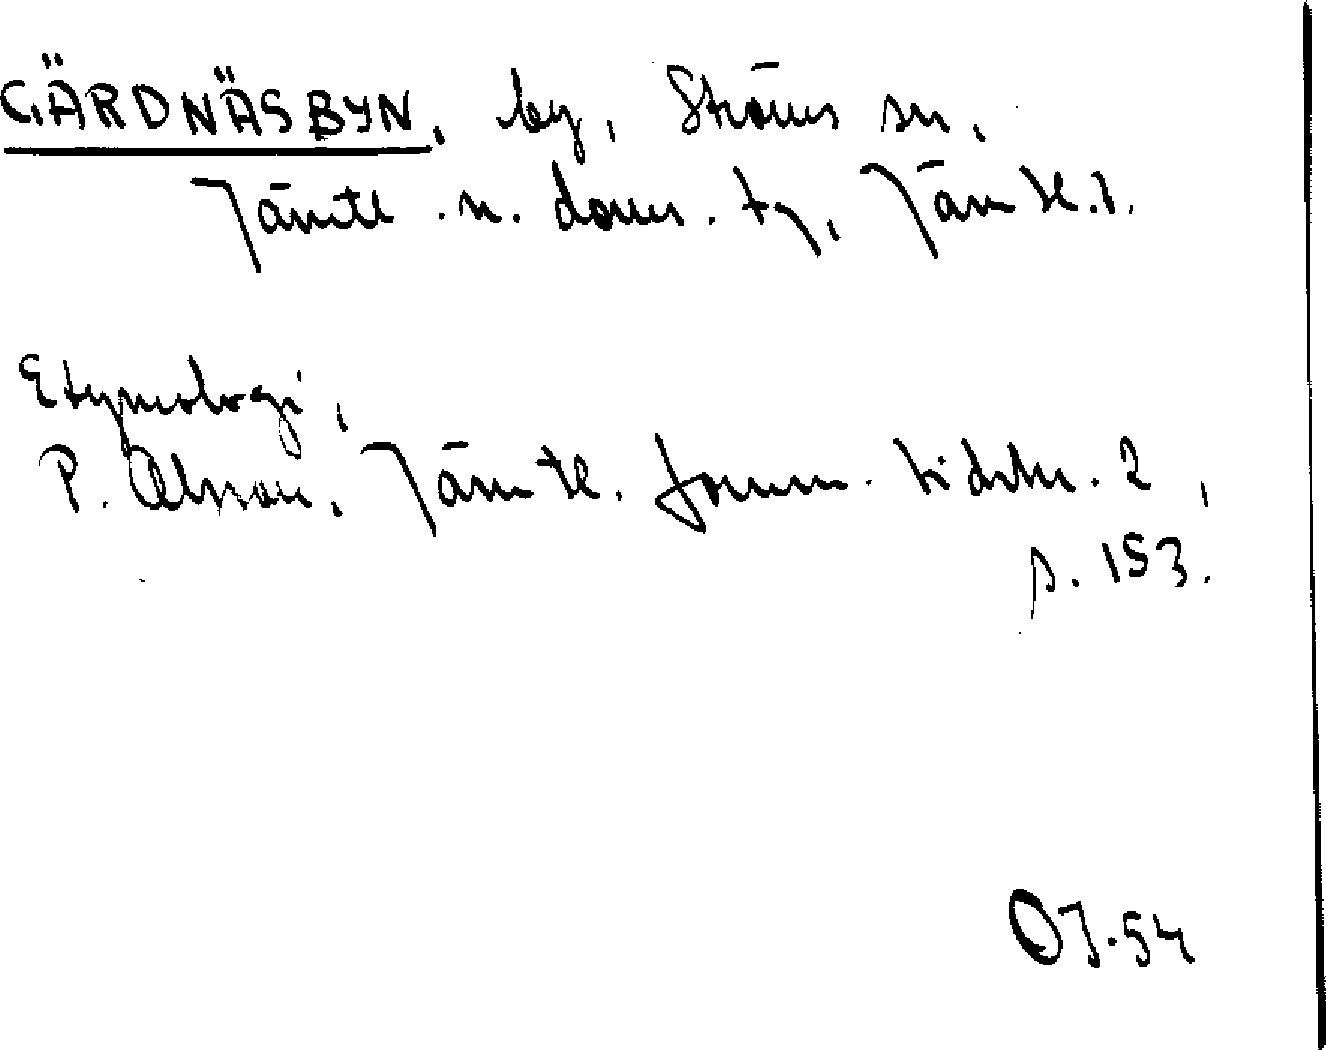 GÄRDNÄSBYN, by, Ströms sn,
Jämtl. n. doms. tg, Jämtl. l.
Etymologi,
P. Olsson, Jämtl. fornm. tidskr. 2,
s. 153.
OJ. 54